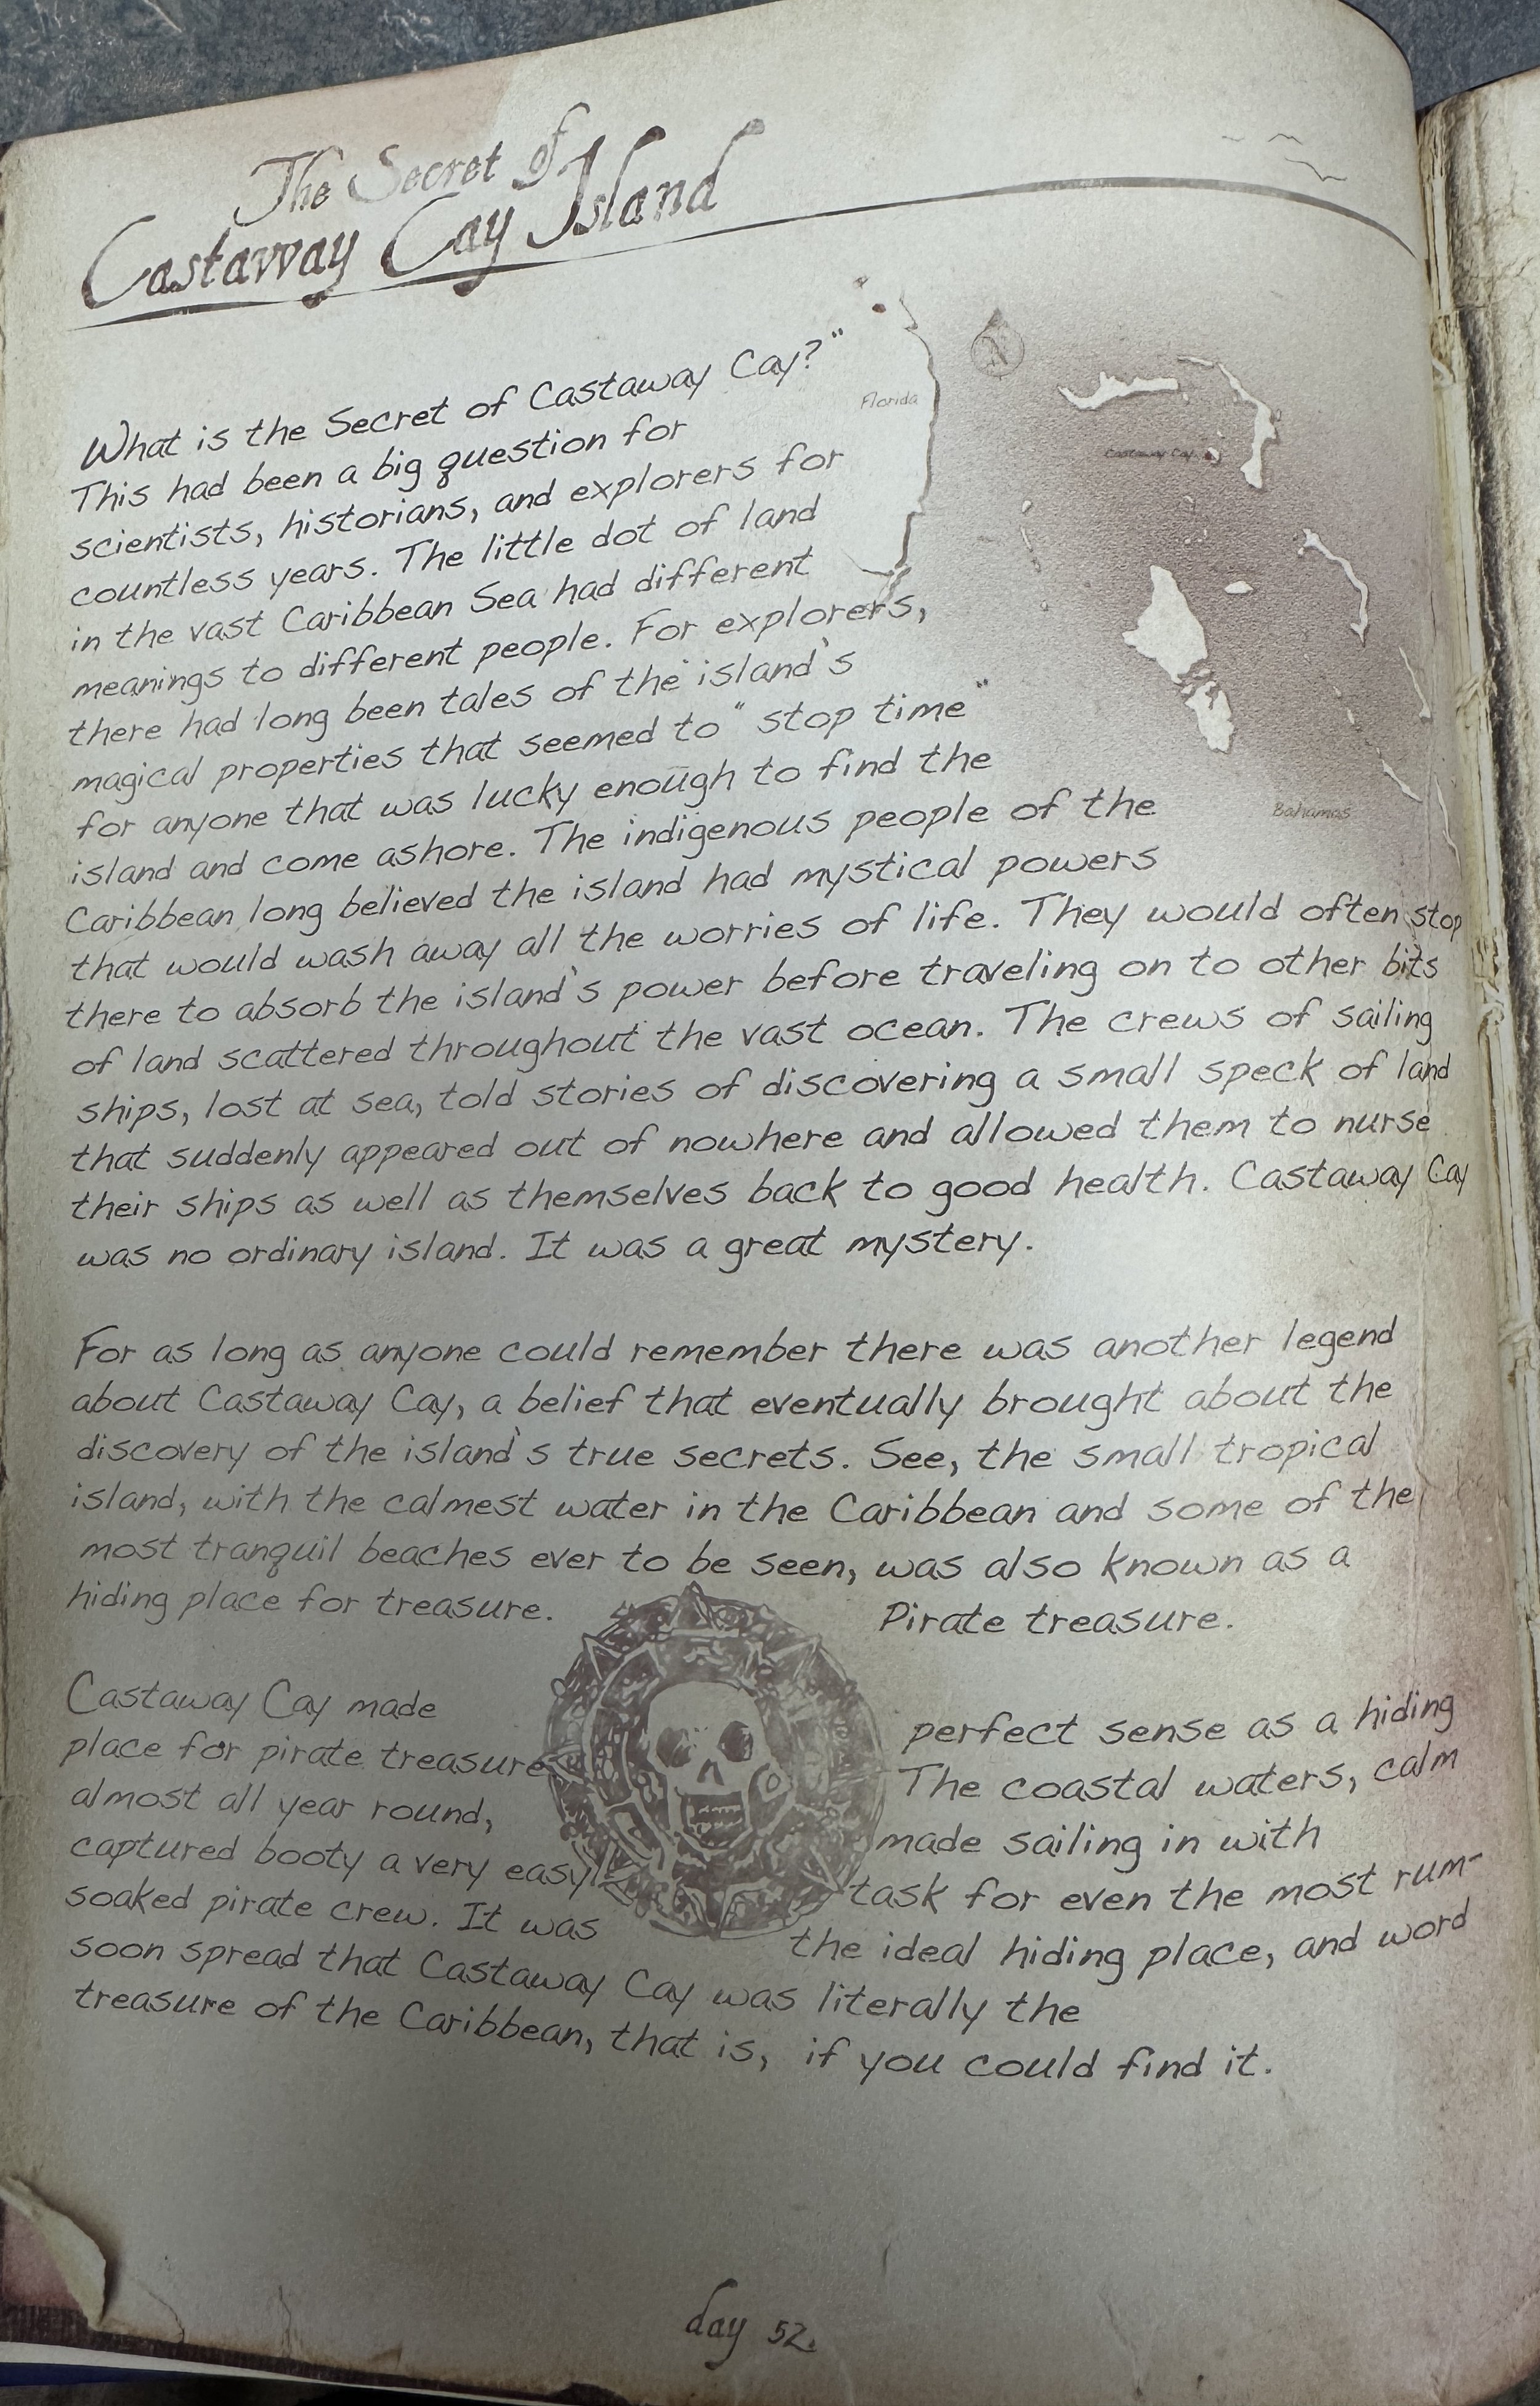 The Secret of
Castaway Cay Island
What is the Secret of Castaway Cay?"
This had been a big question for
scientists, historians, and explorers for
countless years. The little dot of land
in the vast Caribbean Sea had different
meanings to different people. For explorers,
there had long been tales of the island's
magical properties that seemed to "stop time"
for anyone that was lucky enough to find the
island and come ashore. The indigenous people of the
Caribbean long believed the island had mystical powers
that would wash away all the worries of life. They would often stop
there to absorb the island's power before traveling on to other bits
of land scattered throughout the vast ocean. The crews of sailing
ships, lost at sea, told stories of discovering a small speck of land
that suddenly appeared out of nowhere and allowed them to nurse
their ships as well as themselves back to good health. Castaway Cay
was no ordinary island. It was a great mystery.
For as long as anyone could remember there was another legend
about Castaway Cay, a belief that eventually brought about the
discovery of the island's true secrets. See, the small tropical
island, with the calmest water in the Caribbean and some of the
most tranquil beaches ever to be seen, was also known as a
hiding place for treasure. Pirate treasure.
Castaway Cay made perfect sense as a hiding
place for pirate treasure The coastal waters, calm
almost all year round, made sailing in with
captured booty a very easy task for even the most rum-
soaked pirate crew. It was the ideal hiding place, and word
soon spread that Castaway Cay was literally the
treasure of the Caribbean, that is, if you could find it.
Florida
N
Castaway Cay
Bahamas
day 52.